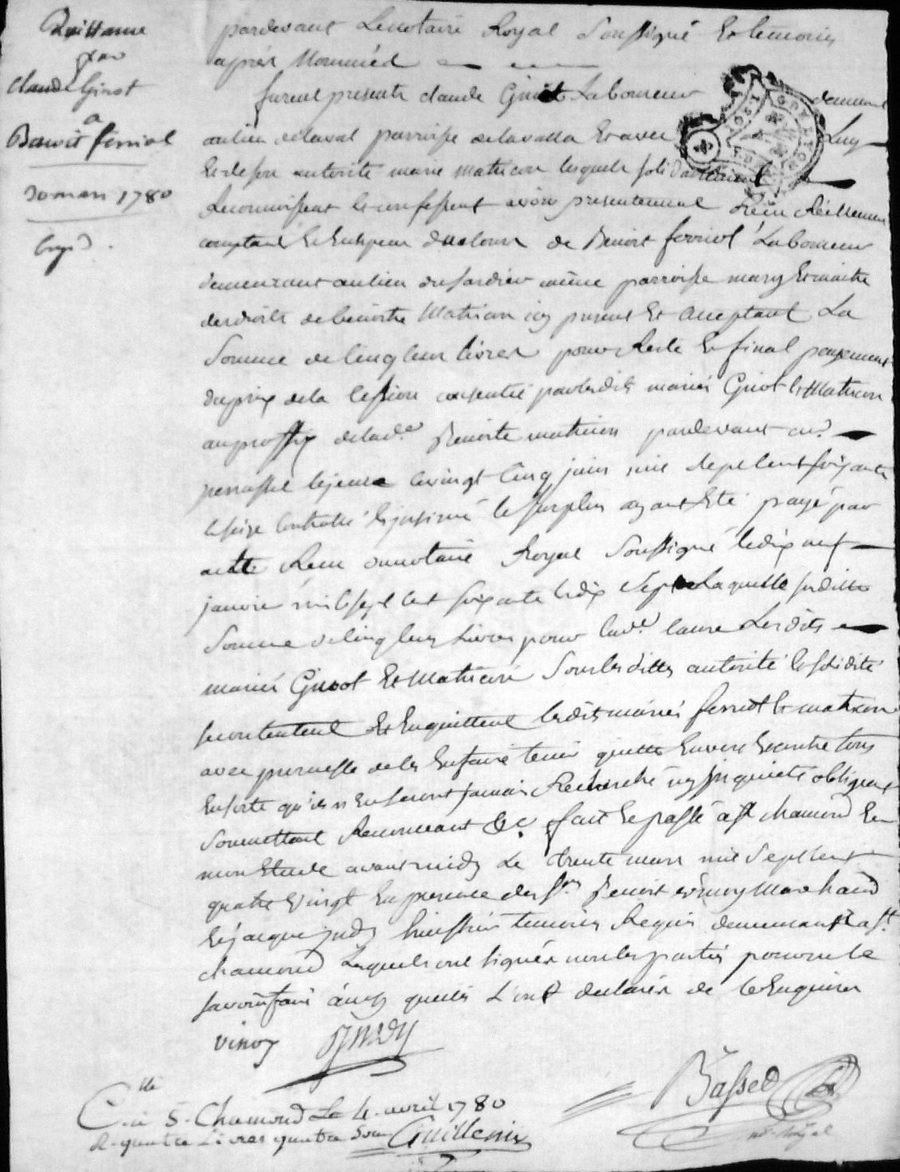 Quittance
par
Claude Ginot
a
Benoit ferriol
30 mars 1780
pardevant Le notaire Royal Soussigné Et temoins
après Nommés
furent presents claude Ginot Laboureur demeurant
au lieu de laval parroisse de lavalla Et avec Luy
Et de son autorité marie mathicon lesquels solidairement
Reconnoissent Et confessent avoir presentement Reçu Réellement
comptant de Benoit ferriol Laboureur
demeurant au lieu du même parroisse mary Et maitre
des droits de benoitte Mathicon icy present Et acceptant La
Somme de Cinq Cent Livres pour Reste Et final payement
du prix de la Cession consentie par lesdits mariés Ginot Et Mathicon
au proffit de lad.e Benoitte mathicon pardevant
le vingt Cinq juin mil Sept Cent soixante
Et seize Controllé Et insinué le surplus ayant Eté payé par
acte Reçu du notaire Royal Soussigné le dix neuf
janvier mil Sept Cent soixante Et dix Sept Laquelle susditte
Somme de Cinq Cent Livres pour lad.e cause Lesdits
mariés Ginot Et Mathicon Sous lesdittes autorité Et solidité
se contentent Et En quittent lesdits mariés ferriol Et mathicon
avec promesse de les En faire tenir quitte Envers Et contre tous
En sorte qu'ils n'En seront jamais Recherchés ny inquietés obligeant
Soumettant Renonceant &c fait Et passé a st chamond En
mon Etude avant midy Le trente mars mil Sept Cent
quatre Vingt En presence de Sr Benoit Marchand
Et jacque judy temoins Requis demeurant a st
chamond Lesquels ont signés non les parties pour ne le
savoir faire ainsy qu'elles L'ont declarés de ce Enquises
judy
Basset
not. Royal
C.lle a S. Chamond Le 4 avril 1780
R. quatre Livres quatre Sous